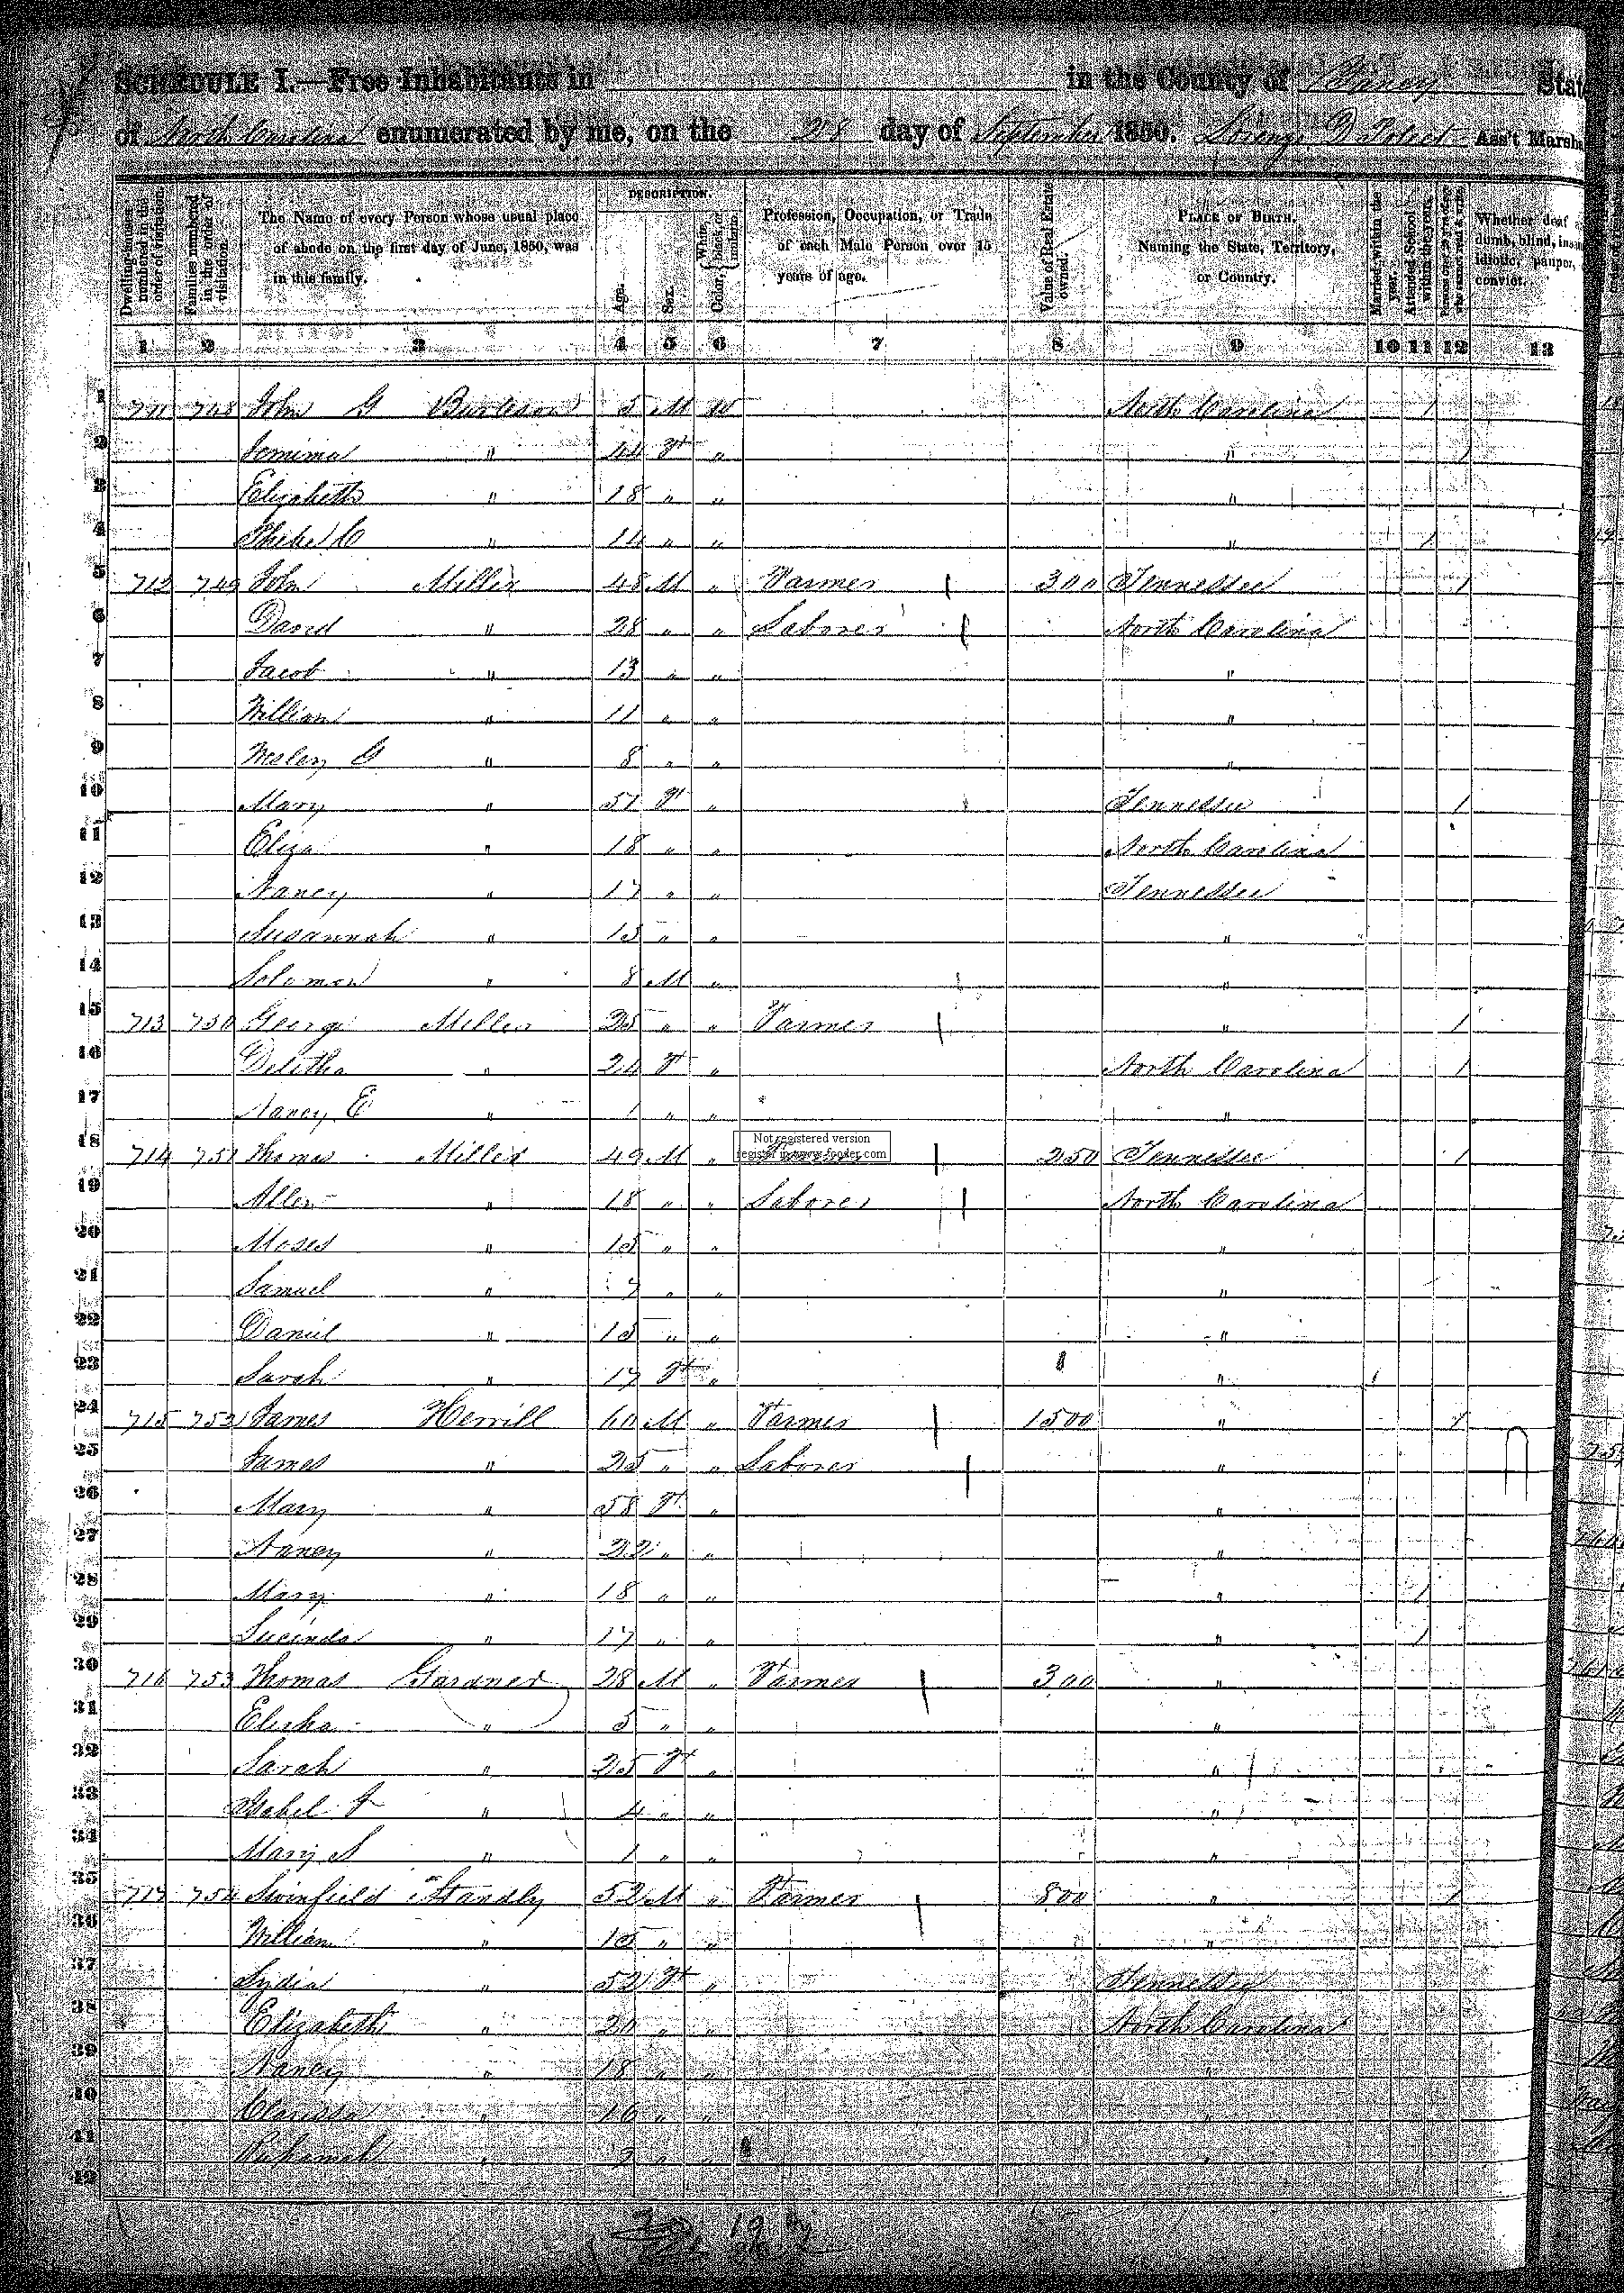 SCHEDULE I.—Free Inhabitants in in the County of Yancy State
of North Carolina enumerated by me, on the 28 day of September 1850. Ass't Marsha
DESCRIPTION.
Dwelling-houses numbered in the order of visitation.
Families numbered in the order of visitation.
The Name of every Person whose usual place
of abode on the first day of June, 1850, was
in this family.
Age.
Sex.
Color, White, black, or mulatto.
Profession, Occupation, or Trade
of each Male Person over 15
years of age.
Value of Real Estate owned.
PLACE OF BIRTH.
Naming the State, Territory,
or Country.
Married within the year.
Attended School within the year.
Persons over 20 y'rs of age who cannot read & write.
Whether deaf
dumb, blind, insane
idiotic, pauper,
convict.
1 2 3 4 5 6 7 8 9 10 11 12 13
1 711 748 John G Burleson 5 M W North Carolina 1
2 Jemima " 44 F " " 1
3 Elizabeth " 18 " " "
4 Phebe C " 14 " " " 1
5 712 749 John Miller 48 M " Farmer 300 Tennessee 1
6 David " 28 " " Laborer North Carolina
7 Jacob " 13 " " "
8 William " 11 " " "
9 Wesley G " 8 " " "
10 Mary " 51 F " Tennessee 1
11 Eliza " 18 " " North Carolina
12 Nancy " 17 " " Tennessee
13 Susannah " 15 " " "
14 Solomon " 8 M " "
15 713 750 George Miller 25 " " Farmer " 1
16 Delitha " 24 F " North Carolina 1
17 Nancy E " 1 " " "
Not registered version
18 714 751 Thomas Miller 49 M " Farmer 250 Tennessee 1
19 Allen " 18 " " Laborer North Carolina
20 Moses " 15 " " "
21 Samuel " 7 " " "
22 Daniel " 15 " " "
23 Sarah " 17 F " "
24 715 752 James Herrill 60 M " Farmer 1500 " 1
25 James " 25 " " Laborer "
26 Mary " 58 F " "
27 Nancy " 22 " " "
28 Mary " 18 " " " 1
29 Lucinda " 17 " " " 1
30 716 753 Thomas Gardner 28 M " Farmer 300 "
31 Elisha " 5 " " "
32 Sarah " 25 F " "
33 Isabel " 4 " " "
34 Mary " 1 " " "
35 717 754 Swinfield Standly 52 M " Farmer 800 " 1
36 William " 15 " " "
37 Lydia " 52 F " Tennessee
38 Elizabeth " 20 " " North Carolina
39 Nancy " 18 " " "
40 Clarissa " 16 " " "
41 Ruhamah " " " "
42